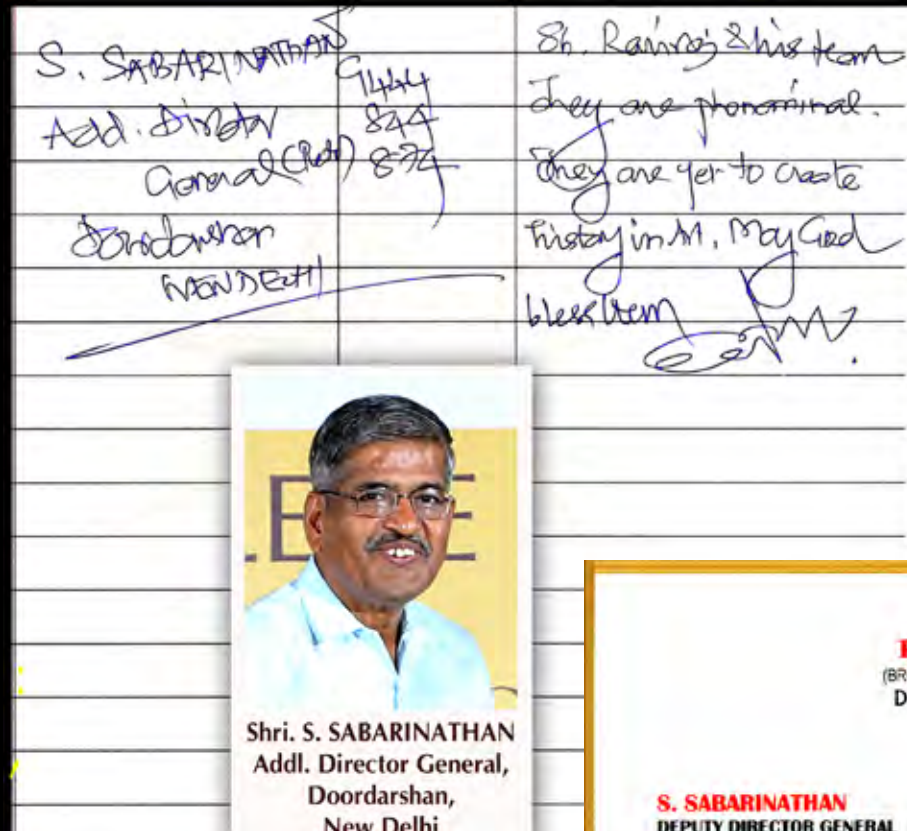 S. SABARINATHAN
9444
844
874
Add. Director
General (Retd)
Doordarshan
NEW DELHI
Sh. & his team
They are phenominal.
They are yet to create
history in Art. May God
bless them
LE E
Shri. S. SABARINATHAN
Addl. Director General,
Doordarshan,
New Delhi
(BR
D
S. SABARINATHAN
DEPUTY DIRECTOR GENERAL